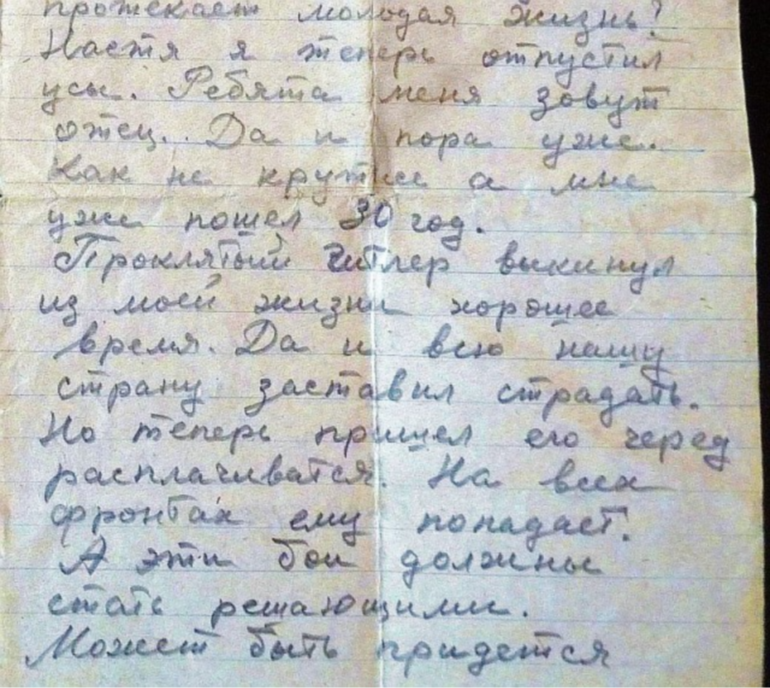 протекает молодая жизнь?
Настя я теперь отпустил
усы. Ребята меня зовут
отец. Да и пора уже.
Как не крутись а мне
уже пошел 30 год.
Проклятый Гитлер выкинул
из моей жизни хорошее
время. Да и всю нашу
страну заставил страдать.
Но теперь пришел его черед
расплачиватся. На всех
фронтах ему попадает.
А эти бои должны
стать решающими.
Может быть придется